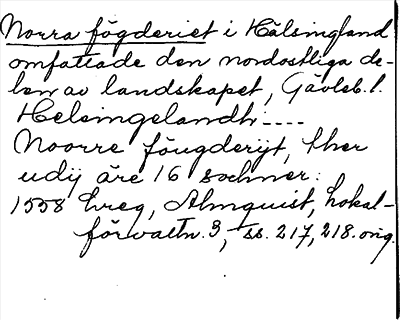 Norra fögderiet i Hälsingland
omfattade den nordostliga de-
len av landskapet, Gävleb. l.
Helsingelandh ----
Noorre föugderijt, ther
udij äre 16 sochner:
1558 breg, Almquist, Lokal-
förvaltn. 3, ss. 217, 218. orig.